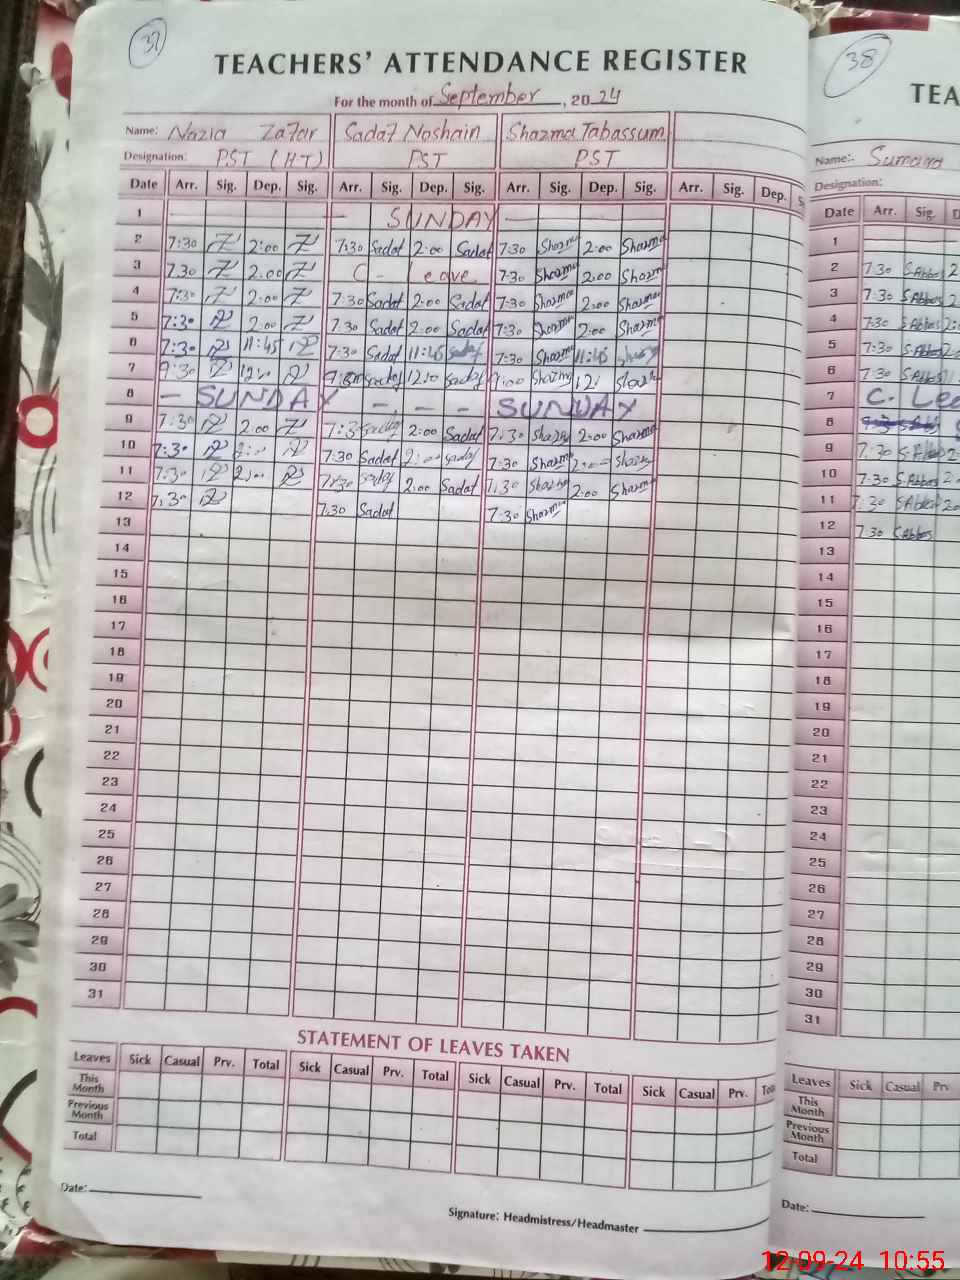 37
TEACHERS' ATTENDANCE REGISTER
For the month of September, 2024
Name: Nazia Zafar Sadaf Noshain Shazma Tabassum
Designation: PST (H.T) PST PST
Date Arr. Sig. Dep. Sig. Arr. Sig. Dep. Sig. Arr. Sig. Dep. Sig. Arr. Sig. Dep. S
1 SUNDAY
2 7:30 2:00 7:30 Sadaf 2:00 Sadaf 7:30 Shazma 2:00 Shazma
3 7:30 2:00 C - Leave 7:30 Shazma 2:00 Shazma
4 7:30 2:00 7:30 Sadaf 2:00 Sadaf 7:30 Shazma 2:00 Shazma
5 7:30 2:00 7:30 Sadaf 2:00 Sadaf 7:30 Shazma 2:00 Shazma
6 7:30 11:45 7:30 Sadaf 11:45 Sadaf 7:30 Shazma 11:45 Shazma
7 9:30 Sadaf Sadaf 9:00 Shazma
8 - SUNDAY - - - SUNDAY
9 7:30 2:00 7:30 Sadaf 2:00 Sadaf 7:30 Shazma 2:00 Shazma
10 7:30 2:00 7:30 Sadaf 2:00 Sadaf 7:30 Shazma 2:00 Shazma
11 7:30 2:00 7:30 Sadaf 2:00 Sadaf 7:30 Shazma 2:00 Shazma
12 7:30 7:30 Sadaf 7:30 Shazma
13
14
15
16
17
18
19
20
21
22
23
24
25
26
27
28
29
30
31
STATEMENT OF LEAVES TAKEN
Leaves Sick Casual Prv. Total Sick Casual Prv. Total Sick Casual Prv. Total Sick Casual Prv. Tot
This Month
Previous Month
Total
Date:
Signature: Headmistress/Headmaster
38
TEA
Name:
Designation:
Date Arr. Sig. D
1
2 7:30 S.Abbas 2
3 7:30 S.Abbas 2
4 7:30 S.Abbas 2:
5 7:30 S.Abbas 2
6 7:30 S.Abbas 11
7 C. Lea
8
9 7:30 S.Abbas 2
10 7:30 S.Abbas 2
11 7:30 S.Abbas 2
12 7:30 S.Abbas
13
14
15
16
17
18
19
20
21
22
23
24
25
26
27
28
29
30
31
Leaves Sick Casual Prv
This Month
Previous Month
Total
Date:
12-09-24 10:55